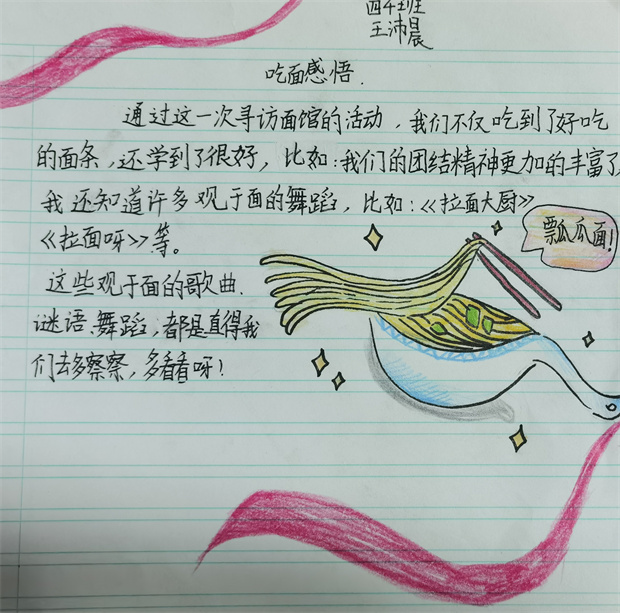 四4班
王沛晨
吃面感悟.
通过这一次寻访面馆的活动，我们不仅吃到了好吃
的面条，还学到了很好，比如：我们的团结精神更加的丰富了
我还知道许多观于面的舞蹈，比如：《拉面大厨》
《拉面呀》等。
瓢瓜面！
这些观于面的歌曲.
谜语.舞蹈，都是值得我
们去多察察，多看看呀！